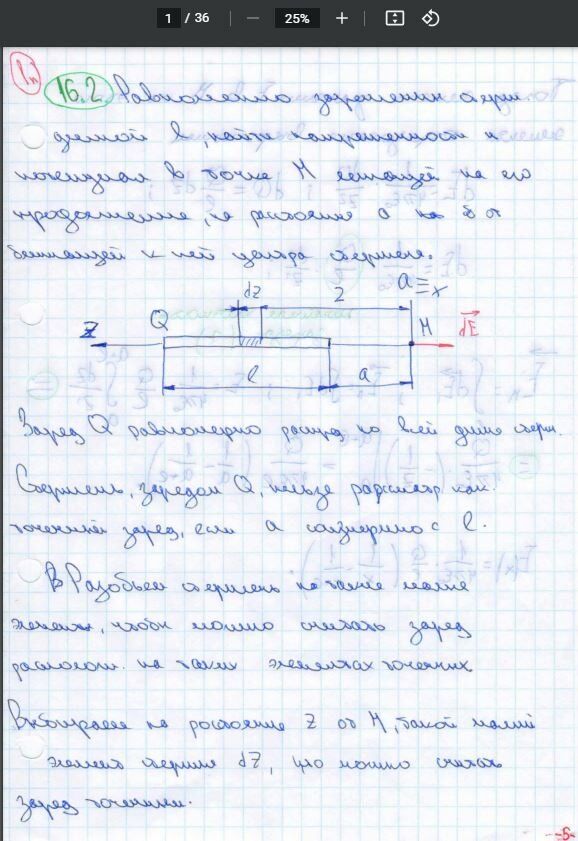 1 / 36 25%
1п
16.2. Равномерно заряженный стерж.
длиной l, найти напряженность и
потенциал в точке М лежащей на его
продолжение, на расстояние a
ближающей к ней стержня.
dz z a ≡ x
Z Q М dE
l a
Заряд Q равномерно распр. по всей длине стерж.
Стержень, зарядом Q, нельзя рассматр. как
точечный заряд, если a соизмеримо с l.
Разобьем стержень на такие малые
элементы, чтобы можно считать заряд
располож. на таких элементах точечных.
Выбираем на расстояние Z от М, такой малый
элемент стержня dZ, что можно считать
заряд точечным.
-5-